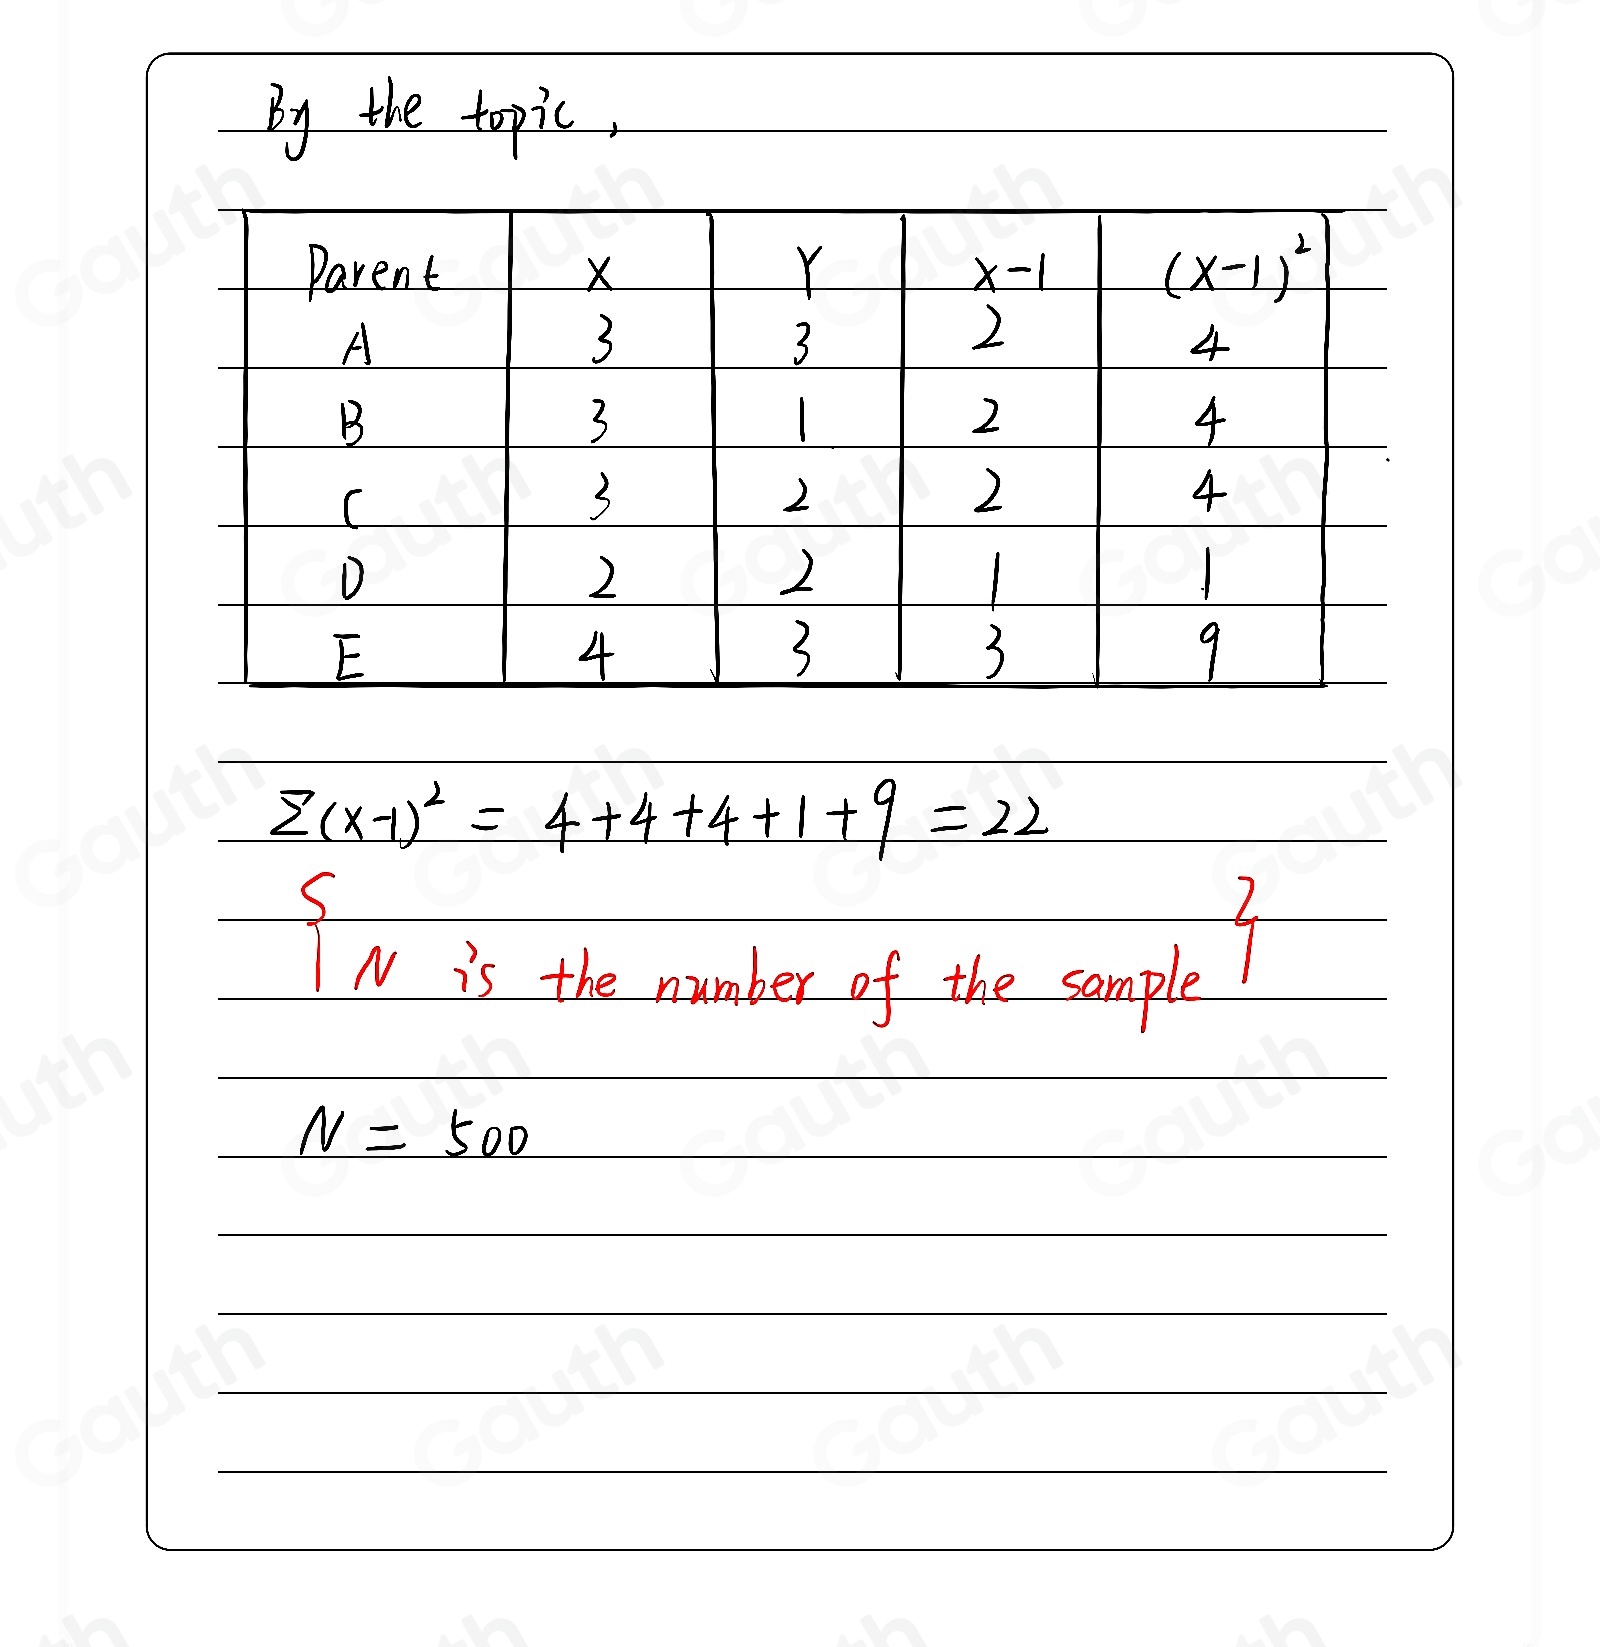 By the topic,
Parent X Y X-1 (X-1)²
A 3 3 2 4
B 3 1 2 4
C 3 2 2 4
D 2 2 1 1
E 4 3 3 9
Σ(X-1)² = 4+4+4+1+9 = 22
{ N is the number of the sample }
N = 500
Gauth